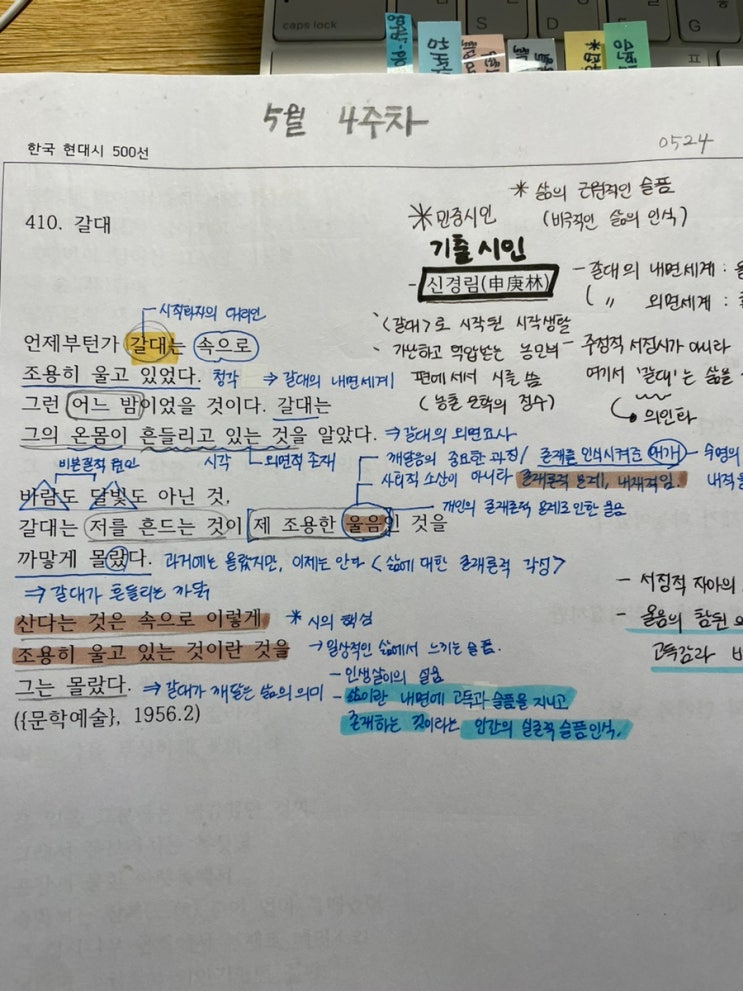 caps lock
A
S
D
F
G
5월 4주차
한국 현대시 500선
0524
* 삶의 근원적인 슬픔
(비극적인 삶의 인식)
410. 갈대
* 민중시인
기출 시인
- 신경림(申庚林)
- 갈대의 내면세계 :
( 〃 외면세계 :
시적화자의 대리인
· <갈대>로 시작된 시작생활
언제부턴가 갈대는 속으로
· 가난하고 억압받는 농민의
편에서서 시를 씀
- 주정적 서정시가 아니라
조용히 울고 있었다. 청각 ⇒ 갈대의 내면세계
여기서 '갈대'는 삶을
그런 어느 밤이었을 것이다. 갈대는
(농촌 문학의 정수)
의인화
그의 온몸이 흔들리고 있는 것을 알았다. ⇒ 갈대의 외면묘사
비본질적 원인
시각
외면적 존재
- 깨달음의 중요한 과정 / 존재를 인식시켜주는 매개
- 사회적 소산이 아니라 존재론적 문제, 내재적임.
바람도 달빛도 아닌 것,
개인의 존재론적 문제로 인한 울음
갈대는 저를 흔드는 것이 제 조용한 울음인 것을
까맣게 몰랐다. 과거에는 몰랐지만, 이제는 안다 <삶에 대한 존재론적 각성>
⇒ 갈대가 흔들리는 까닭
- 서정적 자아의
산다는 것은 속으로 이렇게 * 시의 핵심
- 울음의 참된
조용히 울고 있는 것이란 것을 → 일상적인 삶에서 느끼는 슬픔.
고독감과
- 인생살이의 설움
그는 몰랐다. ⇒ 갈대가 깨달은 삶의 의미
- 삶이란 내면에 고독과 슬픔을 지니고
존재하는 것이라는 인간의 실존적 슬픔 인식.
({문학예술}, 1956.2)